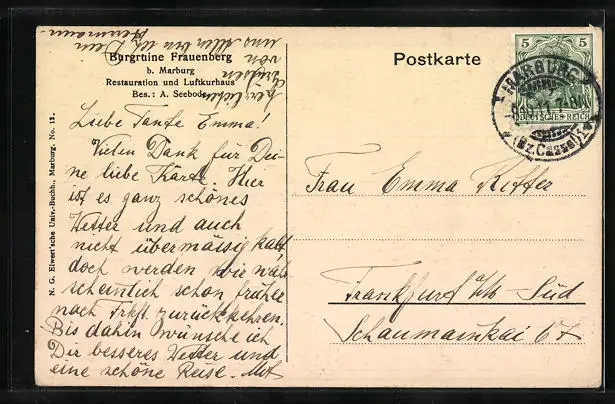 Burgruine Frauenberg
b. Marburg
Restauration und Luftkurhaus
Bes.: A. Seebode
Postkarte
5 5
DEUTSCHES REICH
MARBURG
(Bz. Cassel)
N. G. Elwert'sche Univ.-Buchh., Marburg. No. 12.
Liebe Tante Emma!
Vielen Dank für Dei-
ne liebe Karte. Hier
ist es ganz schönes
Wetter und auch
nicht übermässig kalt,
doch werden wir wahr
scheinlich schon früher
nach Frkft. zurückkehren.
Bis dahin wünsche ich
Dir besseres Wetter und
eine schöne Reise. Mit
herzlichen
Grüssen
von
uns allen bin ich Dein
Hermann
Frau Emma
Frankfurt a/M Süd
Schaumainkai